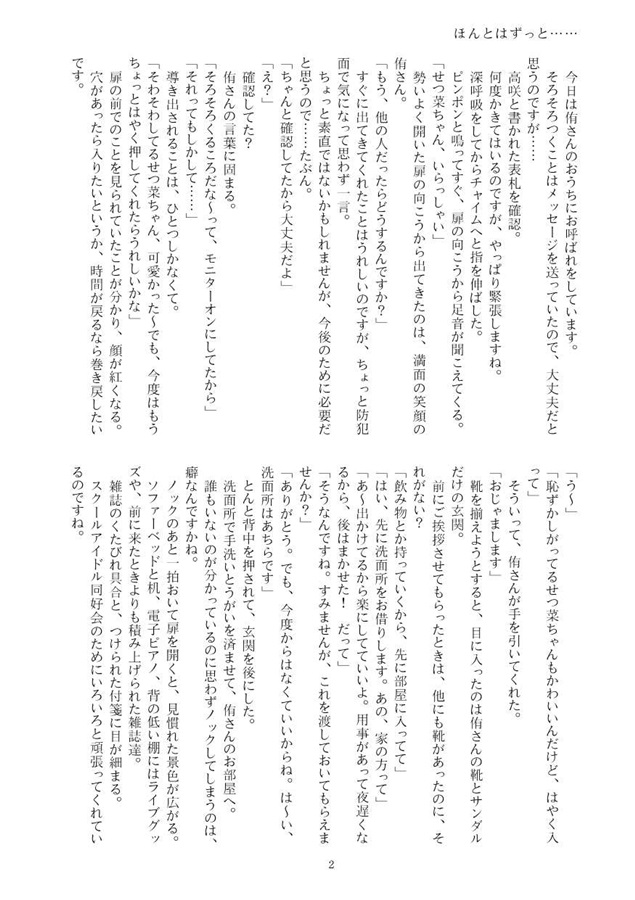 ほんとはずっと……
今日は侑さんのおうちにお呼ばれをしています。
そろそろつくことはメッセージを送っていたので、大丈夫だと
思うのですが……
高咲と書かれた表札を確認。
何度かきてはいるのですが、やっぱり緊張しますね。
深呼吸をしてからチャイムへと指を伸ばした。
ピンポンと鳴ってすぐ、扉の向こうから足音が聞こえてくる。
「せつ菜ちゃん、いらっしゃい」
勢いよく開いた扉の向こうから出てきたのは、満面の笑顔の
侑さん。
「もう、他の人だったらどうするんですか？」
すぐに出てきてくれたことはうれしいのですが、ちょっと防犯
面で気になって思わず一言。
ちょっと素直ではないかもしれませんが、今後のために必要だ
と思うので……たぶん。
「ちゃんと確認してたから大丈夫だよ」
「え？」
確認してた？
侑さんの言葉に固まる。
「そろそろくるころだな～って、モニターオンにしてたから」
「それってもしかして……」
導き出されることは、ひとつしかなくて。
「そわそわしてるせつ菜ちゃん、可愛かった～でも、今度はもう
ちょっとはやく押してくれたらうれしいかな」
扉の前でのことを見られていたことが分かり、顔が紅くなる。
穴があったら入りたいというか、時間が戻るなら巻き戻したい
です。
「う～」
「恥ずかしがってるせつ菜ちゃんもかわいいんだけど、はやく入
って」
そういって、侑さんが手を引いてくれた。
「おじゃまします」
靴を揃えようとすると、目に入ったのは侑さんの靴とサンダル
だけの玄関。
前にご挨拶させてもらったときは、他にも靴があったのに、そ
れがない？
「飲み物とか持っていくから、先に部屋に入ってて」
「はい、先に洗面所をお借りします。あの、家の方って」
「あ～出かけてるから楽にしてていいよ。用事があって夜遅くな
るから、後はまかせた！　だって」
「そうなんですね。すみませんが、これを渡しておいてもらえま
せんか？」
「ありがとう。でも、今度からはなくていいからね。は～い、
洗面所はあちらです」
とんと背中を押されて、玄関を後にした。
洗面所で手洗いとうがいを済ませて、侑さんのお部屋へ。
誰もいないのが分かっているのに思わずノックしてしまうのは、
癖なんですかね。
ノックのあと一拍おいて扉を開くと、見慣れた景色が広がる。
ソファーベッドと机、電子ピアノ、背の低い棚にはライブグッ
ズや、前に来たときよりも積み上げられた雑誌達。
雑誌のくたびれ具合と、つけられた付箋に目が細まる。
スクールアイドル同好会のためにいろいろと頑張ってくれてい
るのですね。
2